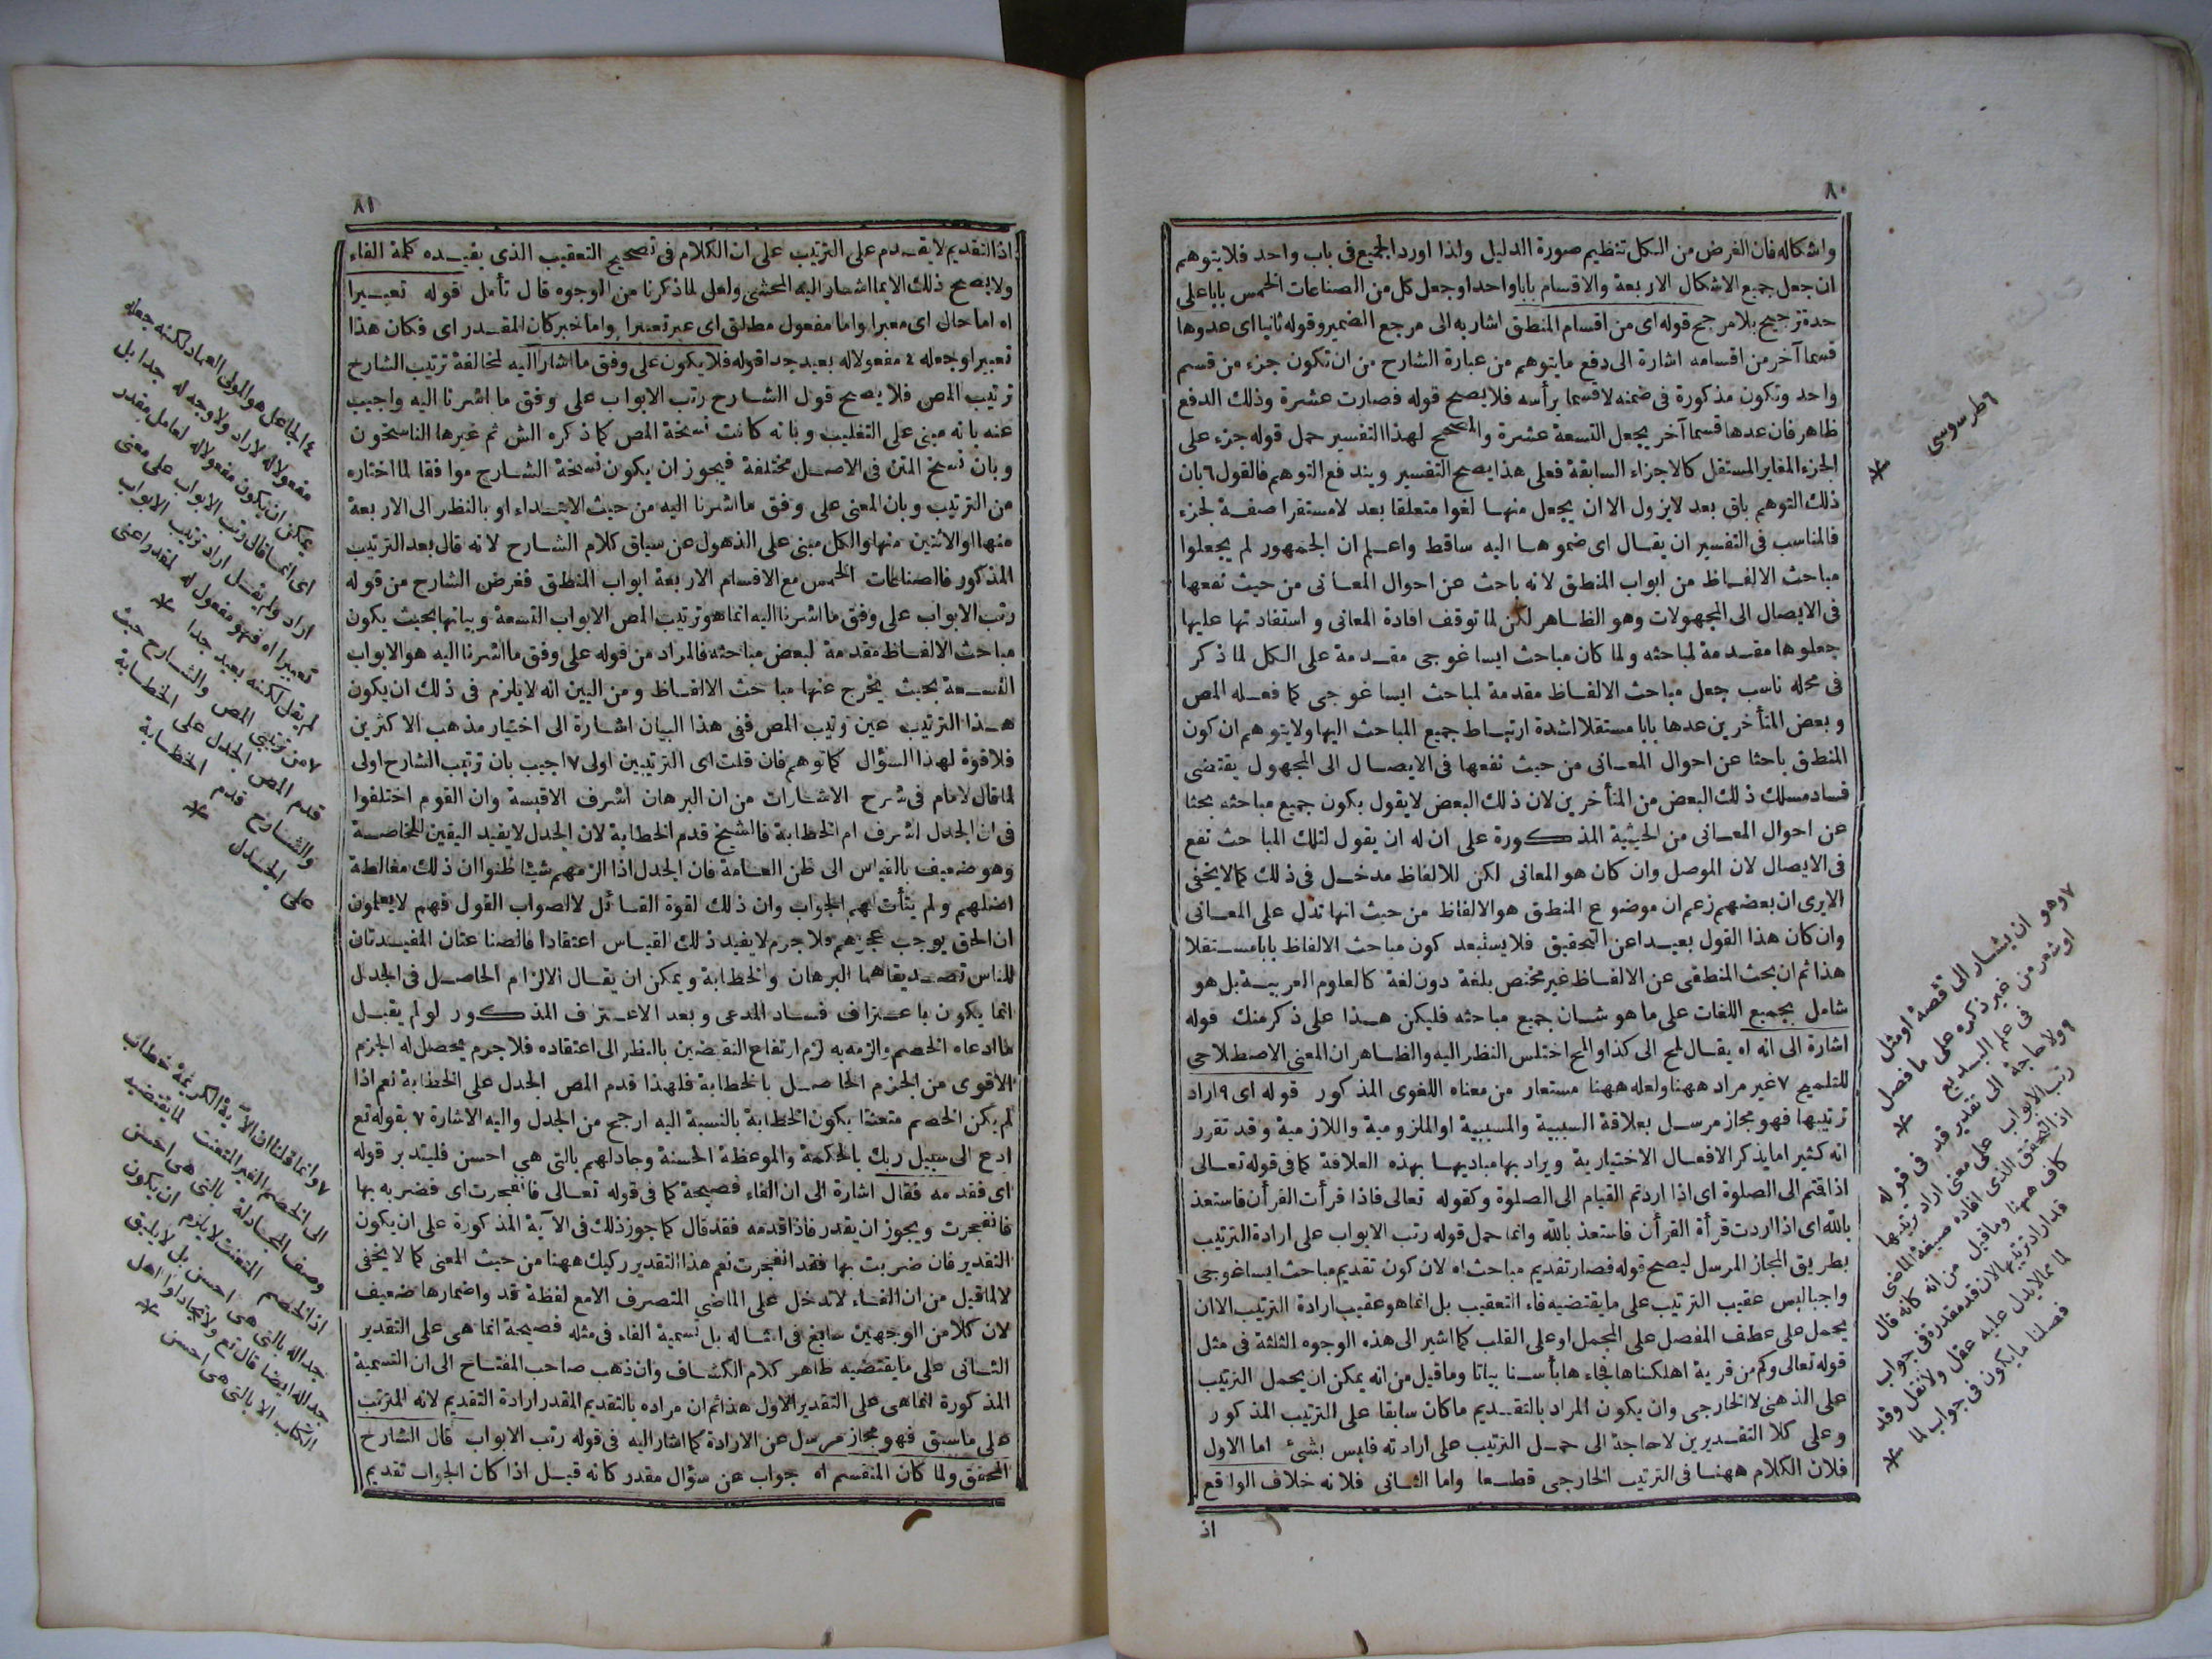 ٨٠
واشكاله فان الغرض من الكل تنظيم صورة الدليل ولذا اورد الجميع فى باب واحد فلايتوهم
ان جعل جميع الاشكال الاربعة والاقسام بابا واحدا وجعل كل من الصناعات الخمس بابا على
حدة ترجيح بلا مرجح قوله اى من اقسام المنطق اشار به الى مرجع الضمير وقوله ثانيا اى عدوها
قسما آخر من اقسامه اشارة الى دفع ما يتوهم من عبارة الشارح من ان تكون جزء من قسم
واحد وتكون مذكورة فى ضمنه لا قسما برأسه فلا يصح قوله فصارت عشرة وذلك الدفع
ظاهر فان عدها قسما آخر يجعل التسعة عشرة والمصحح لهذا التفسير حمل قوله جزء على
الجزء المغاير المستقل كالاجزاء السابقة فعلى هذا يصح التفسير ويندفع التوهم فالقول ٦ بان
ذلك التوهم باق بعد لايزول الا ان يجعل منها لغوا متعلقا بعد لا مستقرا صفة لجزء
فالمناسب فى التفسير ان يقال اى ضموها اليه ساقط واعلم ان الجمهور لم يجعلوا
مباحث الالفاظ من ابواب المنطق لانه باحث عن احوال المعانى من حيث نفعها
فى الايصال الى المجهولات وهو الظاهر لكن لما توقف افادة المعانى و استفادتها عليها
جعلوها مقدمة لمباحثه ولما كان مباحث ايساغوجى مقدمة على الكل لما ذكر
فى محله ناسب جعل مباحث الالفاظ مقدمة لمباحث ايساغوجى كما فعله المص
وبعض المتأخرين عدها بابا مستقلا لشدة ارتباط جميع المباحث اليها ولايتوهم ان كون
المنطق باحثا عن احوال المعانى من حيث نفعها فى الايصال الى المجهول يقتضى
فساد مسلك ذلك البعض من المتأخرين لان ذلك البعض لايقول بكون جميع مباحثه بحثا
عن احوال المعانى من الحيثية المذكورة على ان له ان يقول لتلك المباحث نفع
فى الايصال لان الموصل وان كان هو المعانى لكن للالفاظ مدخل فى ذلك كما لايخفى
الايرى ان بعضهم زعم ان موضوع المنطق هو الالفاظ من حيث انها تدل على المعانى
وان كان هذا القول بعيدا عن التحقيق فلا يستبعد كون مباحث الالفاظ بابا مستقلا
هذا ثم ان بحث المنطقى عن الالفاظ غير مختص بلغة دون لغة كالعلوم العربية بل هو
شامل بجميع اللغات على ما هو شان جميع مباحثه فليكن هذا على ذكر منك قوله
اشارة الى انه اه يقال لمح الى كذا والمح اختلس النظر اليه والظاهر ان المعنى الاصطلاحى
للتلميح ٧ غير مراد ههنا ولعله ههنا مستعار من معناه اللغوى المذكور قوله اى ٩ اراد
ترتيبها فهو مجاز مرسل بعلاقة السببية والمسببية او الملزومية واللازمية وقد تقرر
انه كثيرا ما يذكر الافعال الاختيارية ويراد بها مباديها بهذه العلاقة كما فى قوله تعالى
اذا قتم الى الصلوة اى اذا اردتم القيام الى الصلوة وكقوله تعالى فاذا قرأت القرأن فاستعذ
بالله اى اذا اردت قرأة القرأن فاستعذ بالله وانما حمل قوله رتب الابواب على ارادة الترتيب
بطريق المجاز المرسل ليصح قوله فصار تقديم مباحث اه لان كون تقديم مباحث ايساغوجى
واجبا ليس عقيب الترتيب على ما يقتضيه فاء التعقيب بل انما هو عقيب ارادة الترتيب الا ان
يحمل على عطف المفصل على المجمل او على القلب كما اشير الى هذه الوجوه الثلثة فى مثل
قوله تعالى وكم من قرية اهلكناها فجاءها بأسنا بياتا وما قيل من انه يمكن ان يحمل الترتيب
على الذهنى لا الخارجى وان يكون المراد بالتقديم ما كان سابقا على الترتيب المذكور
وعلى كلا التقديرين لا حاجة الى حمل الترتيب على ارادته فليس بشئ اما الاول
فلان الكلام ههنا فى الترتيب الخارجى قطعا واما الثانى فلانه خلاف الواقع
اذ
٦ طرسوسى
٧ وهو ان يشار الى قصة او مثل
او شعر من غير ذكره على ما فصل
فى علم البديع
٩ ولا حاجة الى تقدير قد فى قوله
رتب الابواب على معنى اراد ترتيبها
اذ التحقق الذى افاده صيغة الماضى
كاف ههنا وما قيل من انه كانه قال
قد اراد ترتيبها لان قد مقدرة فى جواب
لما مما لا يدل عليه عقل ولا نقل وقد
فصلنا ما يكون فى جواب لما
٨١
اذ التقديم لا يقدم على الترتيب على ان الكلام فى تصحيح التعقيب الذى يفيده كلمة الفاء
ولا يصح ذلك الا بما اشار اليه المحشى ولعل لما ذكرنا من الوجوه قال تأمل قوله تعبيرا
اه اما حال اى معبرا واما مفعول مطلق اى عبر تعبيرا واما خبر كان المقدر اى فكان هذا
تعبيرا وجعله ٤ مفعولا له بعيد جدا قوله فلا يكون على وفق ما اشار اليه لمخالفة ترتيب الشارح
ترتيب المص فلا يصح قول الشارح رتب الابواب على وفق ما اشرنا اليه واجيب
عنه بانه مبنى على التغليب وبانه كانت نسخة المص كما ذكره الش ثم غيرها الناسخون
وبان نسخ المتن فى الاصل مختلفة فيجوز ان يكون نسخة الشارح موافقا لما اختاره
من الترتيب وبان المعنى على وفق ما اشرنا اليه من حيث الابتداء او بالنظر الى الاربعة
منها او الاثنين منها والكل مبنى على الذهول عن سياق كلام الشارح لانه قال بعد الترتيب
المذكور فالصناعات الخمس مع الاقسام الاربعة ابواب المنطق فغرض الشارح من قوله
رتب الابواب على وفق ما اشرنا اليه انما هو ترتيب المص الابواب التسعة وبيانها بحيث يكون
مباحث الالفاظ مقدمة لبعض مباحثه فالمراد من قوله على وفق ما اشرنا اليه هو الابواب
التسعة بحيث يخرج عنها مباحث الالفاظ ومن البين انه لا يلزم فى ذلك ان يكون
هذا الترتيب عين ترتيب المص ففى هذا البيان اشارة الى اختيار مذهب الاكثرين
فلا قوة لهذا السؤال كما توهم فان قلت اى الترتيبين اولى ٧ اجيب بان ترتيب الشارح اولى
لما قال لامام فى شرح الاشارات من ان البرهان اشرف الاقيسة وان القوم اختلفوا
فى ان الجدل اشرف ام الخطابة فالشيخ قدم الخطابة لان الجدل لا يفيد اليقين للخاصة
وهو ضعيف بالقياس الى ظن العامة فان الجدل اذا الزمهم شيئا ظنوا ان ذلك مغالطة
اضلهم ولم يتأت لهم الجواب وان ذلك لقوة القائل لا لصواب القول فهم لا يعلمون
ان الحق يوجب عجزهم فلا جرم لا يفيد ذلك القياس اعتقادا فالصناعتان المفيدتان
للناس تصديقا هما البرهان والخطابة ويمكن ان يقال الالزام الحاصل فى الجدل
انما يكون باعتراف فساد المدعى وبعد الاعتراف المذكور لو لم يقبل
ما ادعاه الخصم والزمه به لزم ارتفاع النقيضين بالنظر الى اعتقاده فلا جرم يحصل له الجزم
الاقوى من الجزم الحاصل بالخطابة فلهذا قدم المص الجدل على الخطابة نعم اذا
لم يكن الخصم متعنتا يكون الخطابة بالنسبة اليه ارجح من الجدل واليه الاشارة ٧ بقوله تع
ادع الى سبيل ربك بالحكمة والموعظة الحسنة وجادلهم بالتى هى احسن فليتدبر قوله
اى فقدمه فقال اشارة الى ان الفاء فصيحة كما فى قوله تعالى فانفجرت اى فضربه بها
فانفجرت ويجوز ان يقدر فاذا قدمه فقد قال كما جوز ذلك فى الآية المذكورة على ان يكون
التقدير فان ضربت بها فقد انفجرت نعم هذا التقدير ركيك ههنا من حيث المعنى كما لا يخفى
لا لما قيل من ان الفاء لا تدخل على الماضى المتصرف الا مع لفظة قد واضمارها ضعيف
لان كلا من الوجهين سايغ فى امثاله بل تسمية الفاء فى مثله فصيحة انما هى على التقدير
الثانى على ما يقتضيه ظاهر كلام الكشاف وان ذهب صاحب المفتاح الى ان التسمية
المذكورة انما هى على التقدير الاول هذا ثم ان مراده بالتقديم المقدر ارادة التقديم لانه المترتب
على ما سبق فهو مجاز مرسل عن الارادة كما اشار اليه فى قوله رتب الابواب قال الشارح
المحقق ولما كان المنقسم اه جواب عن سؤال مقدر كانه قيل اذا كان الجواب تقديم
٤ الجاعل هو المولى العماد لكنه جعله
مفعولا له لاراد ولا وجه له جدا بل
يمكن ان يكون مفعولا له لعامل مقدر
اى انما قال رتب الابواب على معنى
اراد ولم يقل اراد ترتيب الابواب
تعبيرا اه فهو مفعول له لمقدر اعنى
لم يقل لكنه بعيد جدا
٧ من ترتيبى المص والشارح حيث
قدم المص الجدل على الخطابة
والشارح قدم الخطابة
على الجدل
٧ وانما قلنا ان الآية الكريمة خطاب
الى الخصم الغير المتعنت لما يقتضيه
وصف المجادلة بالتى هى احسن
اذ الخصم المتعنت لا يلزم ان يكون
جداله بالتى هى احسن بل لا يليق
جداله ايضا قال تع ولا تجادلوا اهل
الكتاب الا بالتى هى احسن